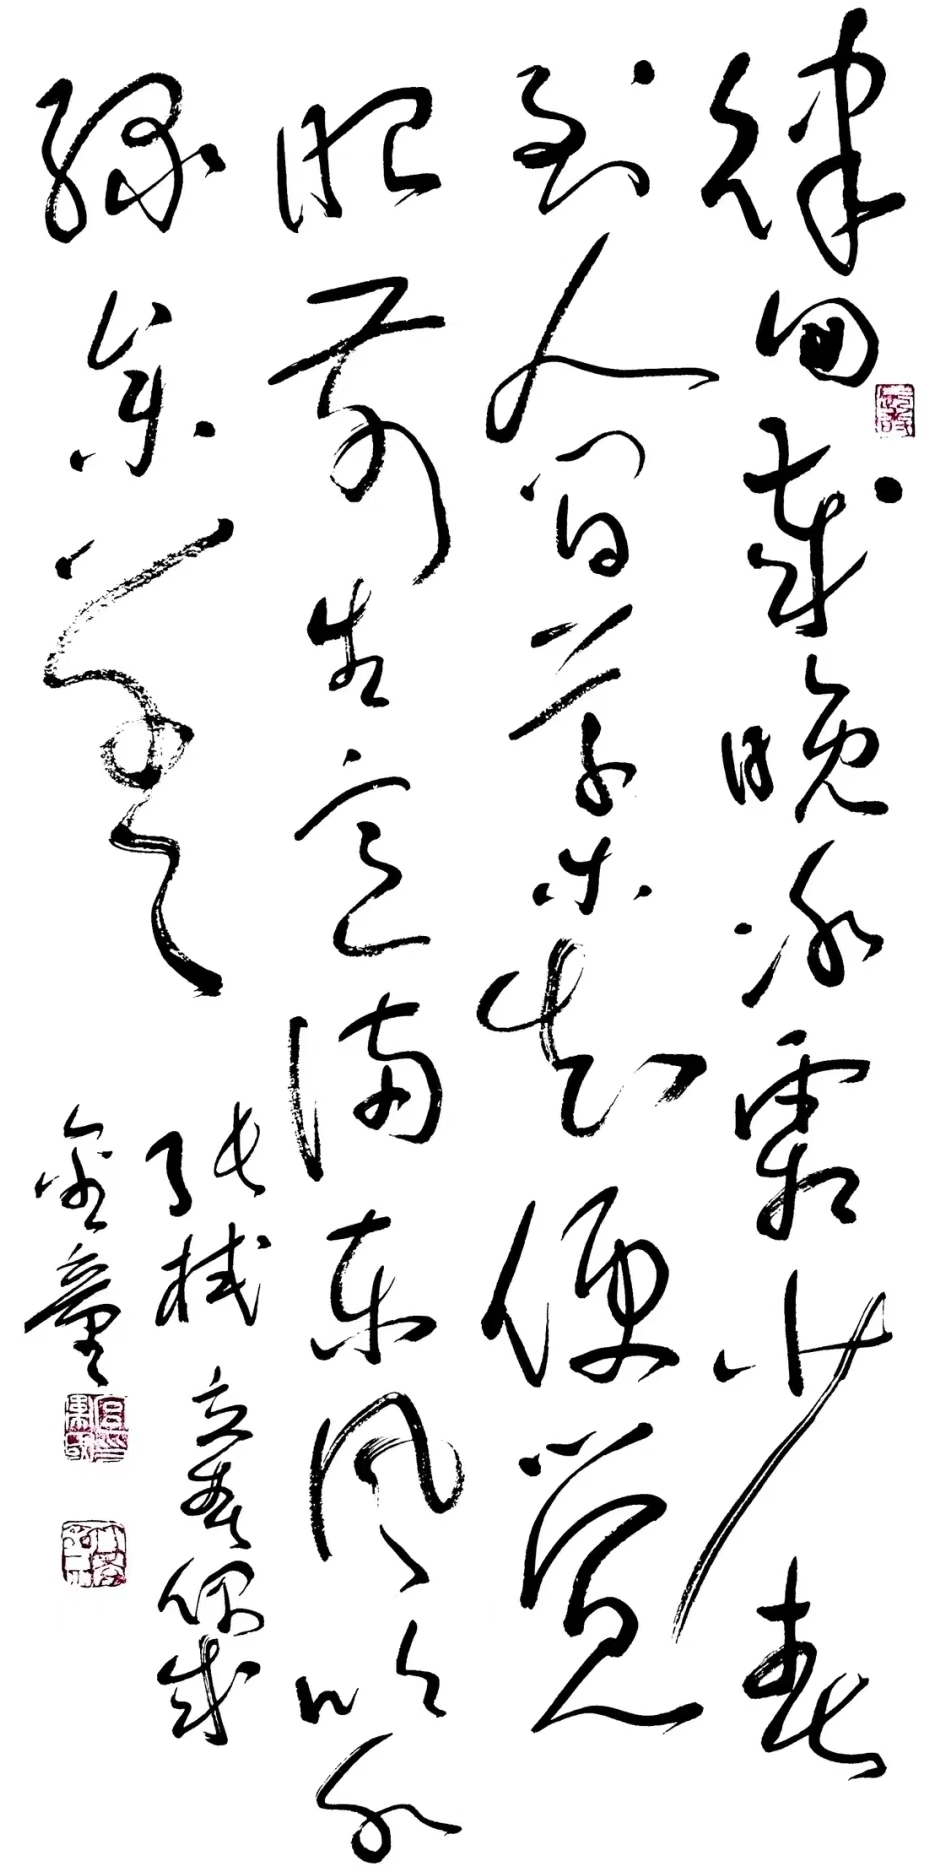 律回岁晚冰霜少春
到人间草木知便觉
眼前生意满东风吹水
绿参差
张栻 立春偶成
金童